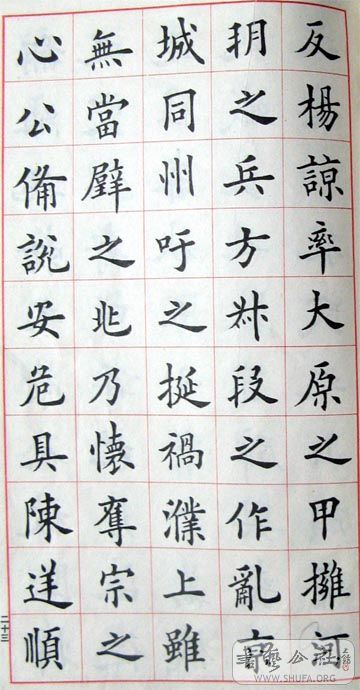 反楊諒率大原之甲擁河
玥之兵方叔段之作亂京
城同州吁之挻禍濮上雖
無當璧之兆乃懷奪宗之
心公備說安危具陳逆順
二十三
書藝公社
WWW.SHUFA.ORG